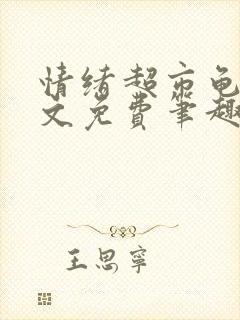 情绪超市龟
文免费笔趣
王思宁